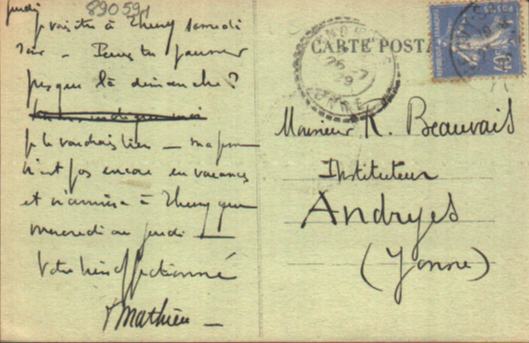 jeudi
89059
je vais à Thury samedi
soir - Peux tu pousser
jusque là dimanche?
je le voudrais bien - ma femme
n'est pas encore en vacances
et n'arrivera à Thury que
mercredi ou jeudi
Votre bien affectionné
Mathieu
CARTE POSTA
Monsieur R. Beauvais
Instituteur
Andryes
(Yonne)